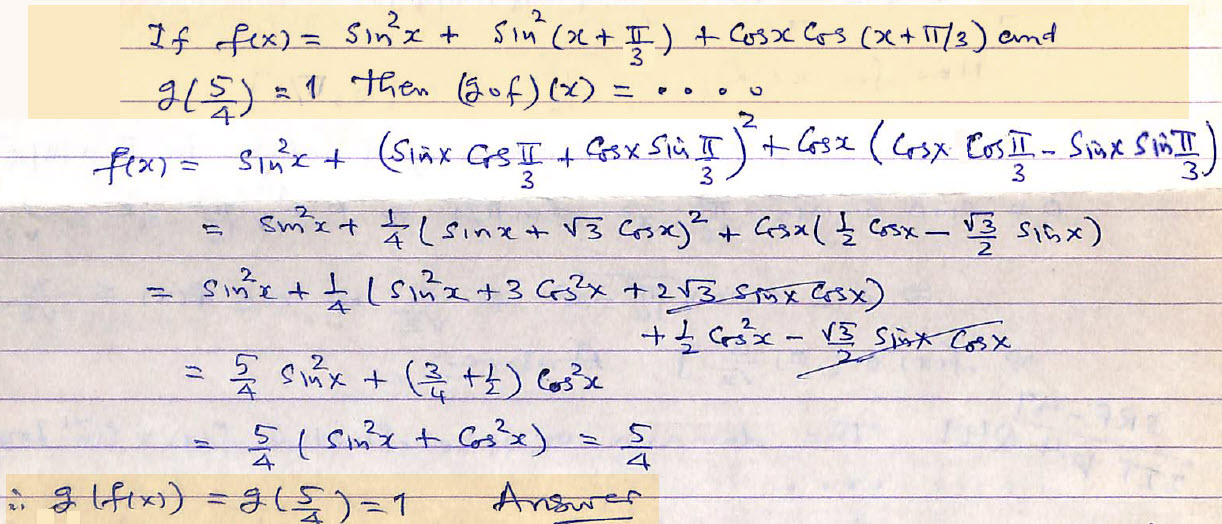 If f(x) = Sin²x + Sin²(x + π/3) + Cosx Cos (x + π/3) and
g(5/4) = 1 then (gof)(x) = ....
f(x) = Sin²x + (Sinx Cos π/3 + Cosx Sin π/3)² + Cosx (Cosx Cos π/3 - Sinx Sin π/3)
= Sin²x + 1/4 (Sinx + √3 Cosx)² + Cosx (1/2 Cosx - √3/2 Sinx)
= Sin²x + 1/4 (Sin²x + 3 Cos²x + 2√3 Sinx Cosx)
+ 1/2 Cos²x - √3/2 Sinx Cosx
= 5/4 Sin²x + (3/4 + 1/2) Cos²x
= 5/4 (Sin²x + Cos²x) = 5/4
∴ g(f(x)) = g(5/4) = 1 Answer